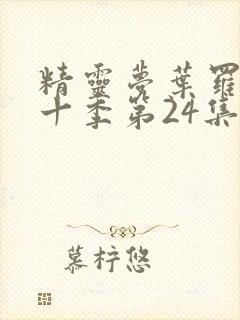 精靈夢葉羅
十季第24集
慕梓悠